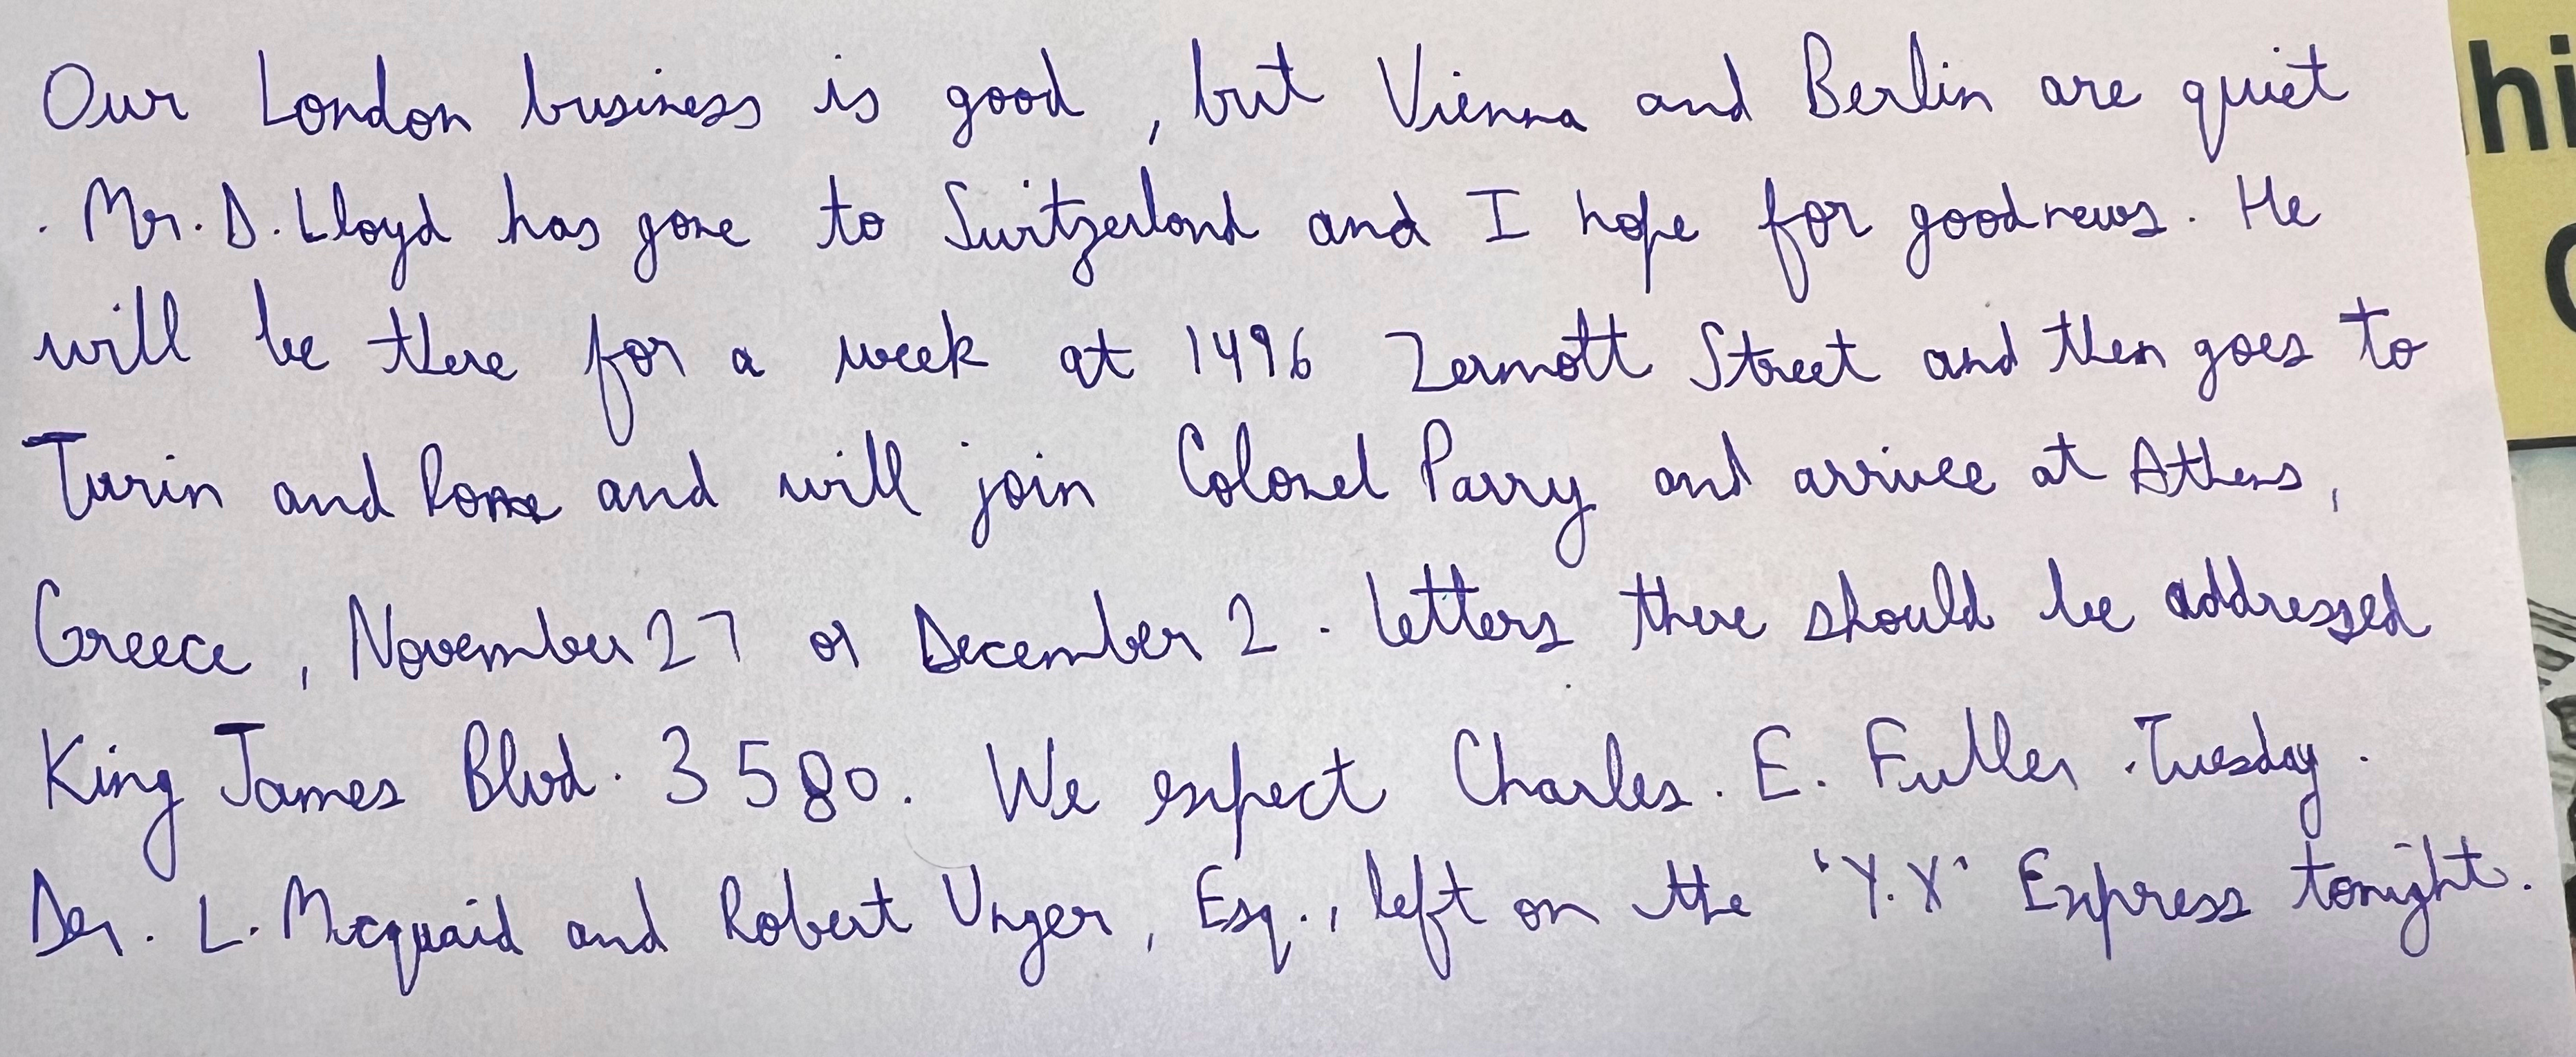 Our London business is good, but Vienna and Berlin are quiet
. Mr. D. Lloyd has gone to Switzerland and I hope for good news. He
will be there for a week at 1496 Zermott Street and then goes to
Turin and Rome and will join Colonel Parry and arrive at Athens,
Greece, November 27 or December 2. Letters there should be addressed
King James Blvd. 3580. We expect Charles. E. Fuller Tuesday.
Der. L. Mcquaid and Robert Unger, Esq., left on the "Y.X" Express tonight.
hi